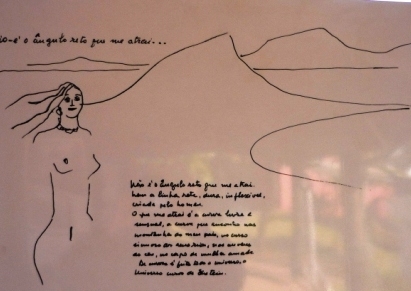 não é o ângulo reto que me atrai...
Não é o ângulo reto que me atrai.
Nem a linha reta, dura, inflexível,
criada pelo homem.
O que me atrai é a curva livre e
sensual, a curva que encontro nas
montanhas do meu país, no curso
sinuoso dos seus rios, nas nuvens
do céu, no corpo da mulher amada.
De curvas é feito todo o universo, o
Universo curvo de Einstein.